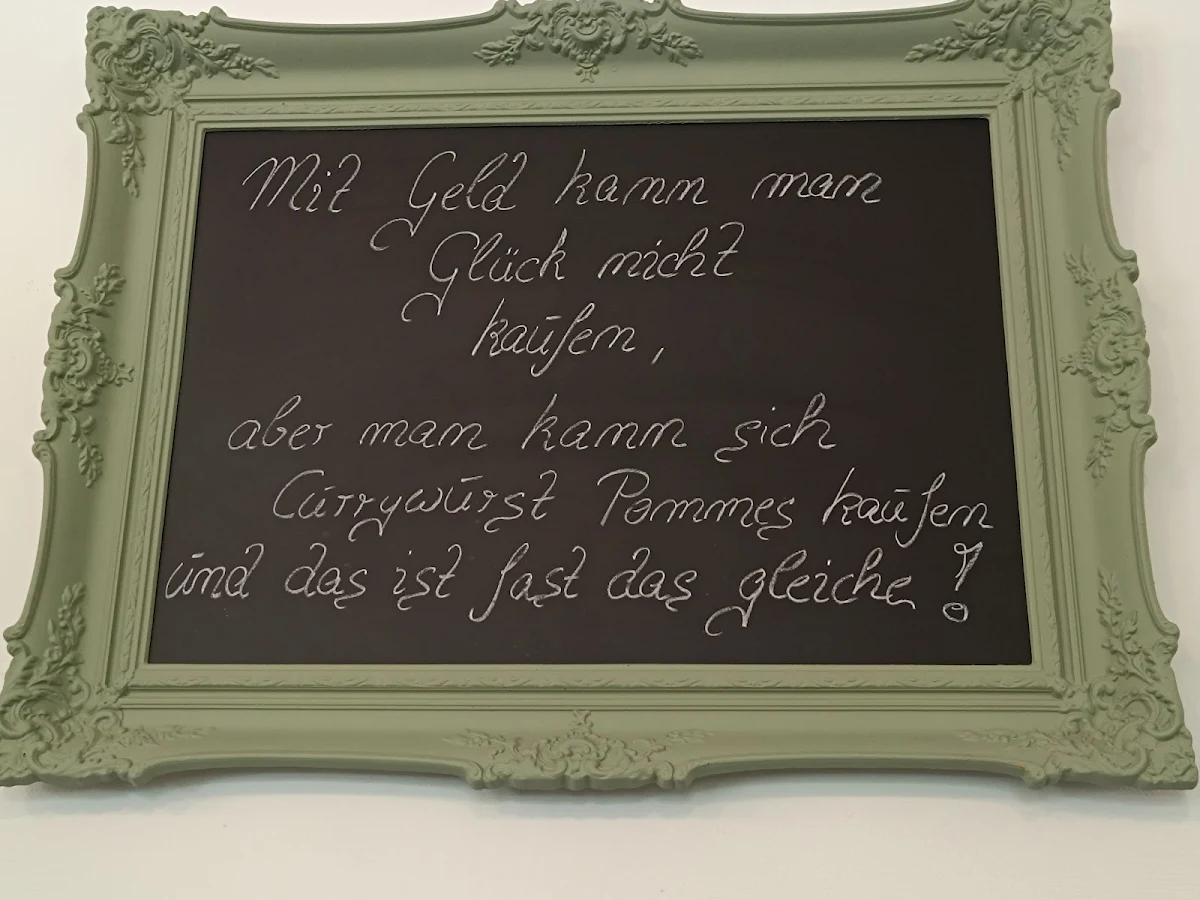 Mit Geld kann man
Glück nicht
kaufen,
aber man kann sich
Currywurst Pommes kaufen
und das ist fast das gleiche!